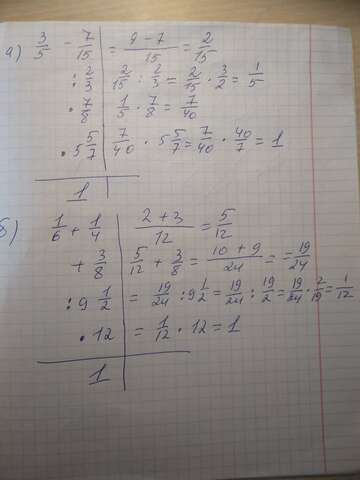 а) 3/5 - 7/15 = (9-7)/15 = 2/15
: 2/3 2/15 : 2/3 = 2/15 · 3/2 = 1/5
· 7/8 1/5 · 7/8 = 7/40
· 5 5/7 7/40 · 5 5/7 = 7/40 · 40/7 = 1
1
б) 1/6 + 1/4 (2+3)/12 = 5/12
+ 3/8 5/12 + 3/8 = (10+9)/24 = = 19/24
: 9 1/2 = 19/24 : 9 1/2 = 19/24 : 19/2 = 19/24 · 2/19 = 1/12
· 12 = 1/12 · 12 = 1
1